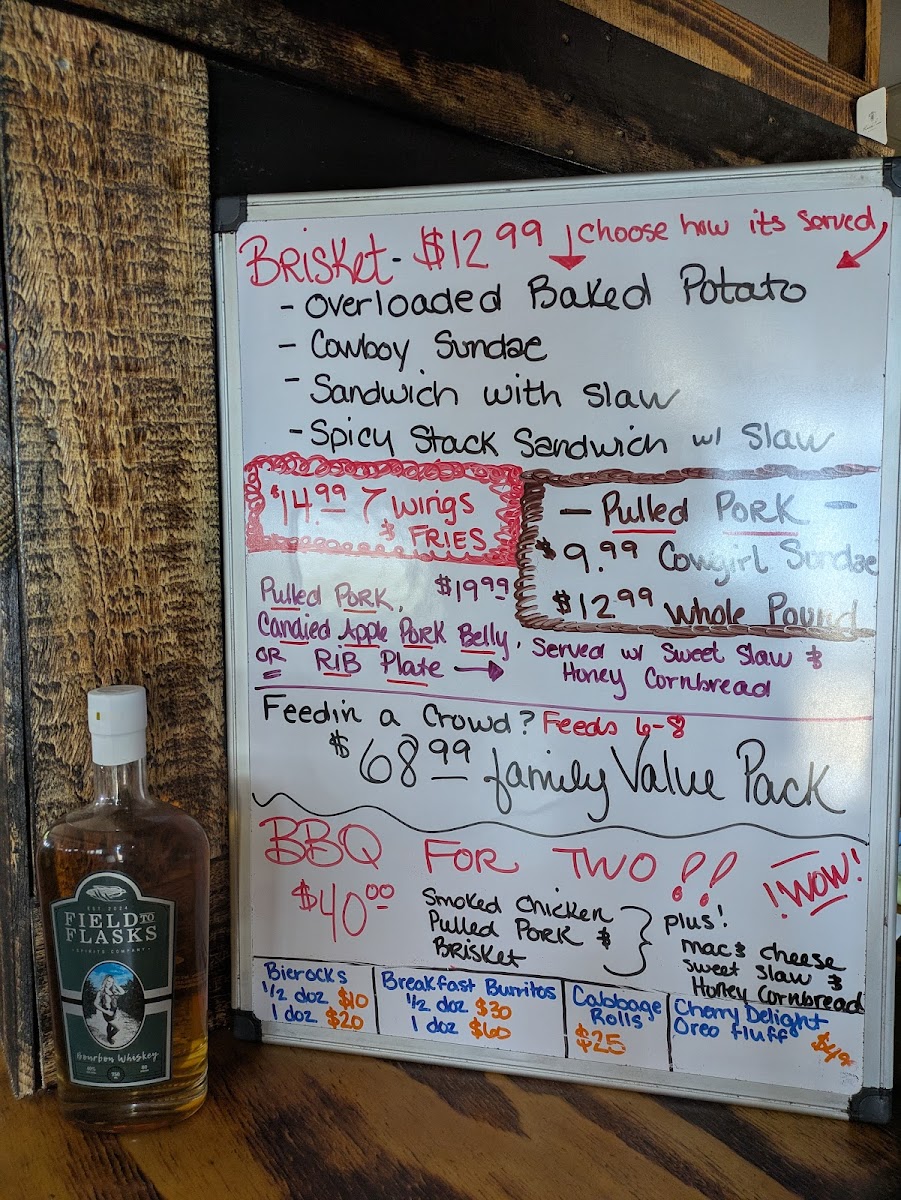 Brisket - $12.99 choose how its served
- Overloaded Baked Potato
- Cowboy Sundae
- Sandwich with slaw
- Spicy Stack Sandwich w/ Slaw
$14.99 7 wings
& FRIES
- Pulled PORK -
$9.99 Cowgirl Sundae
$12.99 Whole Pound
Pulled PORK, $19.99
Candied Apple PORK Belly,
OR RiB Plate
Served w/ Sweet Slaw &
Honey Cornbread
Feedin a Crowd? Feeds 6-8
$68.99 family Value Pack
BBQ FOR TWO!! !WOW!
$40.00
Smoked Chicken
Pulled PORK &
BRisket
plus!
mac & cheese
sweet slaw &
Honey Cornbread
Bierocks
1/2 doz $10
1 doz $20
Breakfast Burritos
1/2 doz $30
1 doz $60
Cabbage
Rolls
$25
Cherry Delight
Oreo fluff
EST. 2024
FIELD TO
FLASKS
SPIRITS COMPANY
Bourbon Whiskey